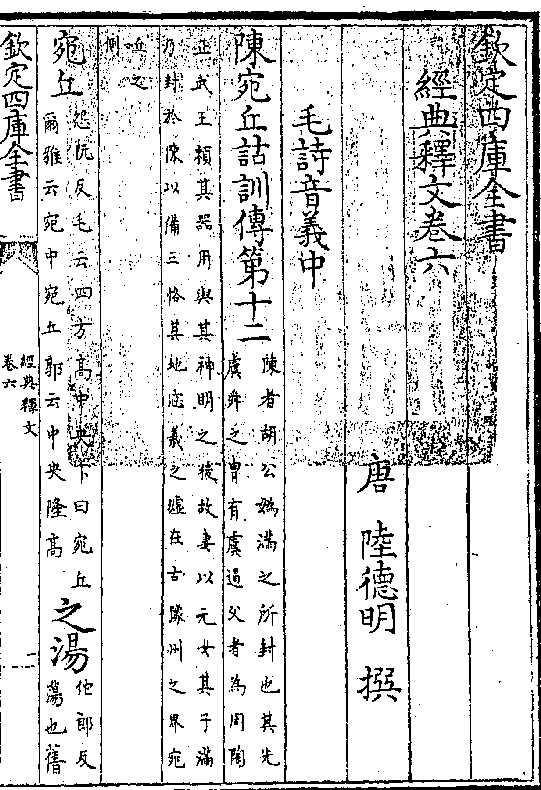 欽定四庫全書
經典釋文卷六
唐 陸德明 撰
毛詩音義中
陳宛丘詁訓傳第十二
陳者胡公媯滿之所封也其先
虞舜之胄有虞遏父者為周陶
正武王賴其器用與其神明之後故妻以元女其子滿
乃封於陳以備三恪其地宓羲之墟在古豫州之界宛
丘之
側
宛丘
怨阮反毛云四方高中央下曰宛丘
爾雅云宛中宛丘郭云中央隆高
之湯
他郎反
蕩也舊
欽定四庫全書
經典釋文
卷六